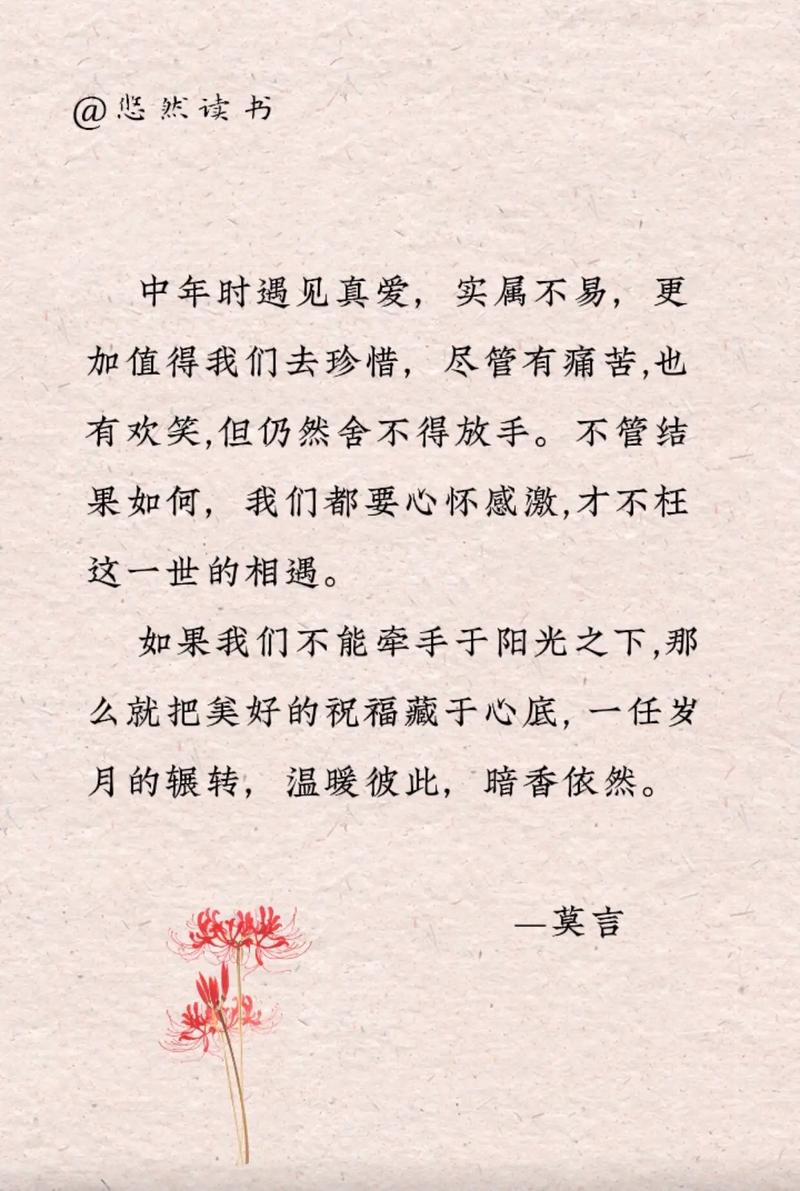 @悠然读书
中年时遇见真爱，实属不易，更
加值得我们去珍惜，尽管有痛苦,也
有欢笑,但仍然舍不得放手。不管结
果如何，我们都要心怀感激,才不枉
这一世的相遇。
如果我们不能牵手于阳光之下,那
么就把美好的祝福藏于心底,一任岁
月的辗转，温暖彼此，暗香依然。
—莫言